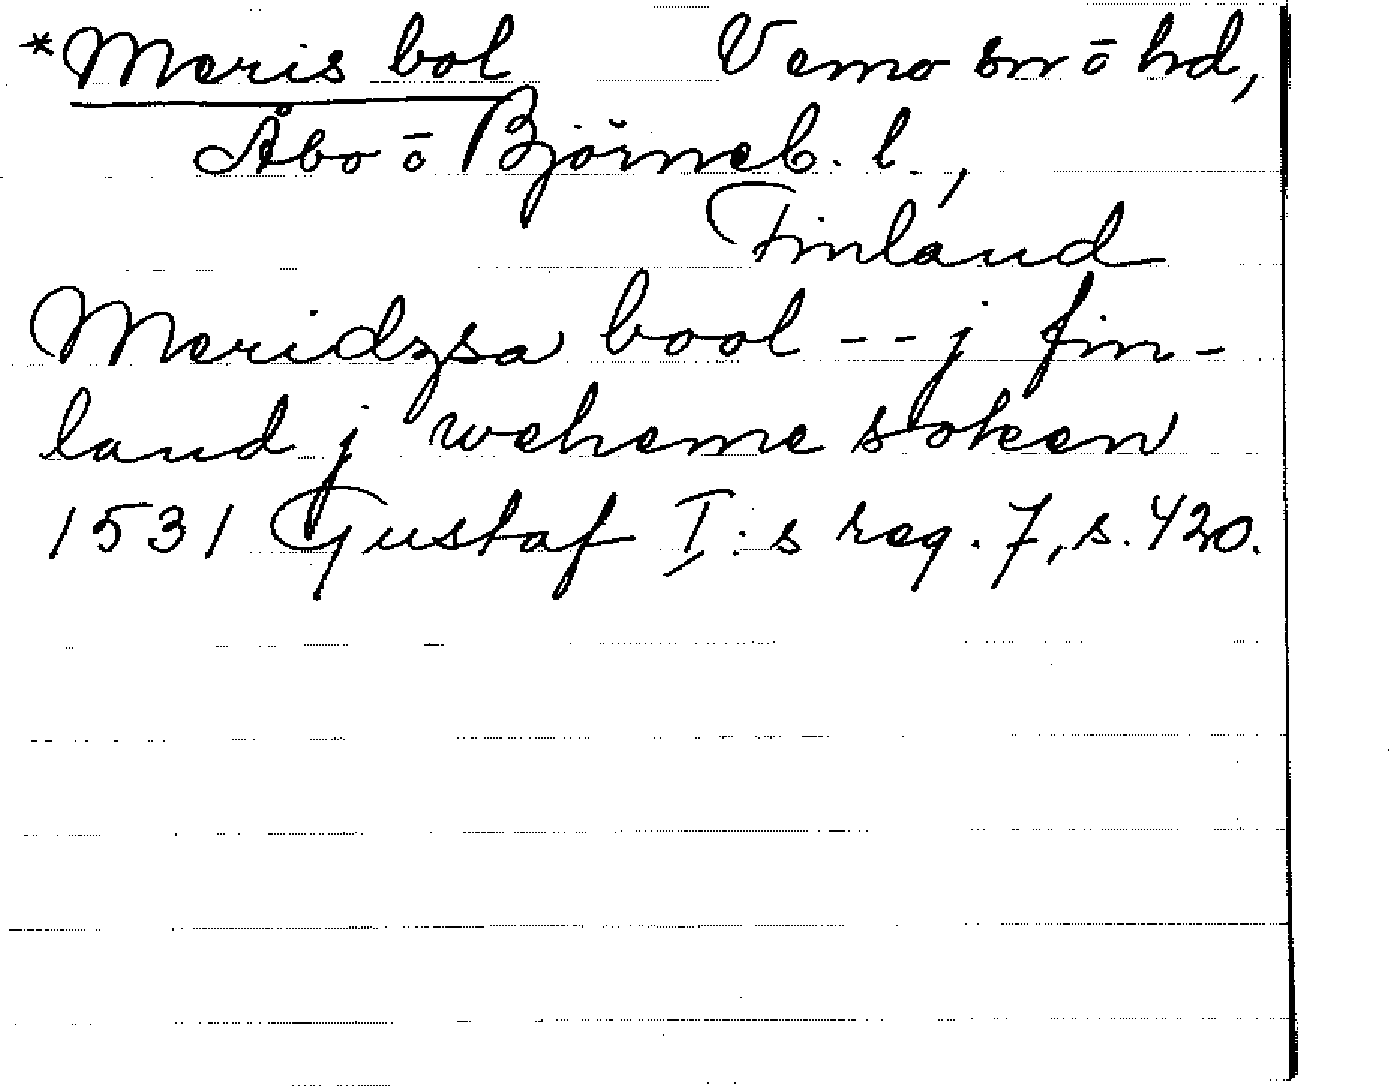 *Meris bol Vemo sn ō hd,
Åbo ō Björneb. l.,
Finland
Meridzsa bool -- j fin-
land j weheme soken
1531 Gustaf I:s reg. 7, s. 420.